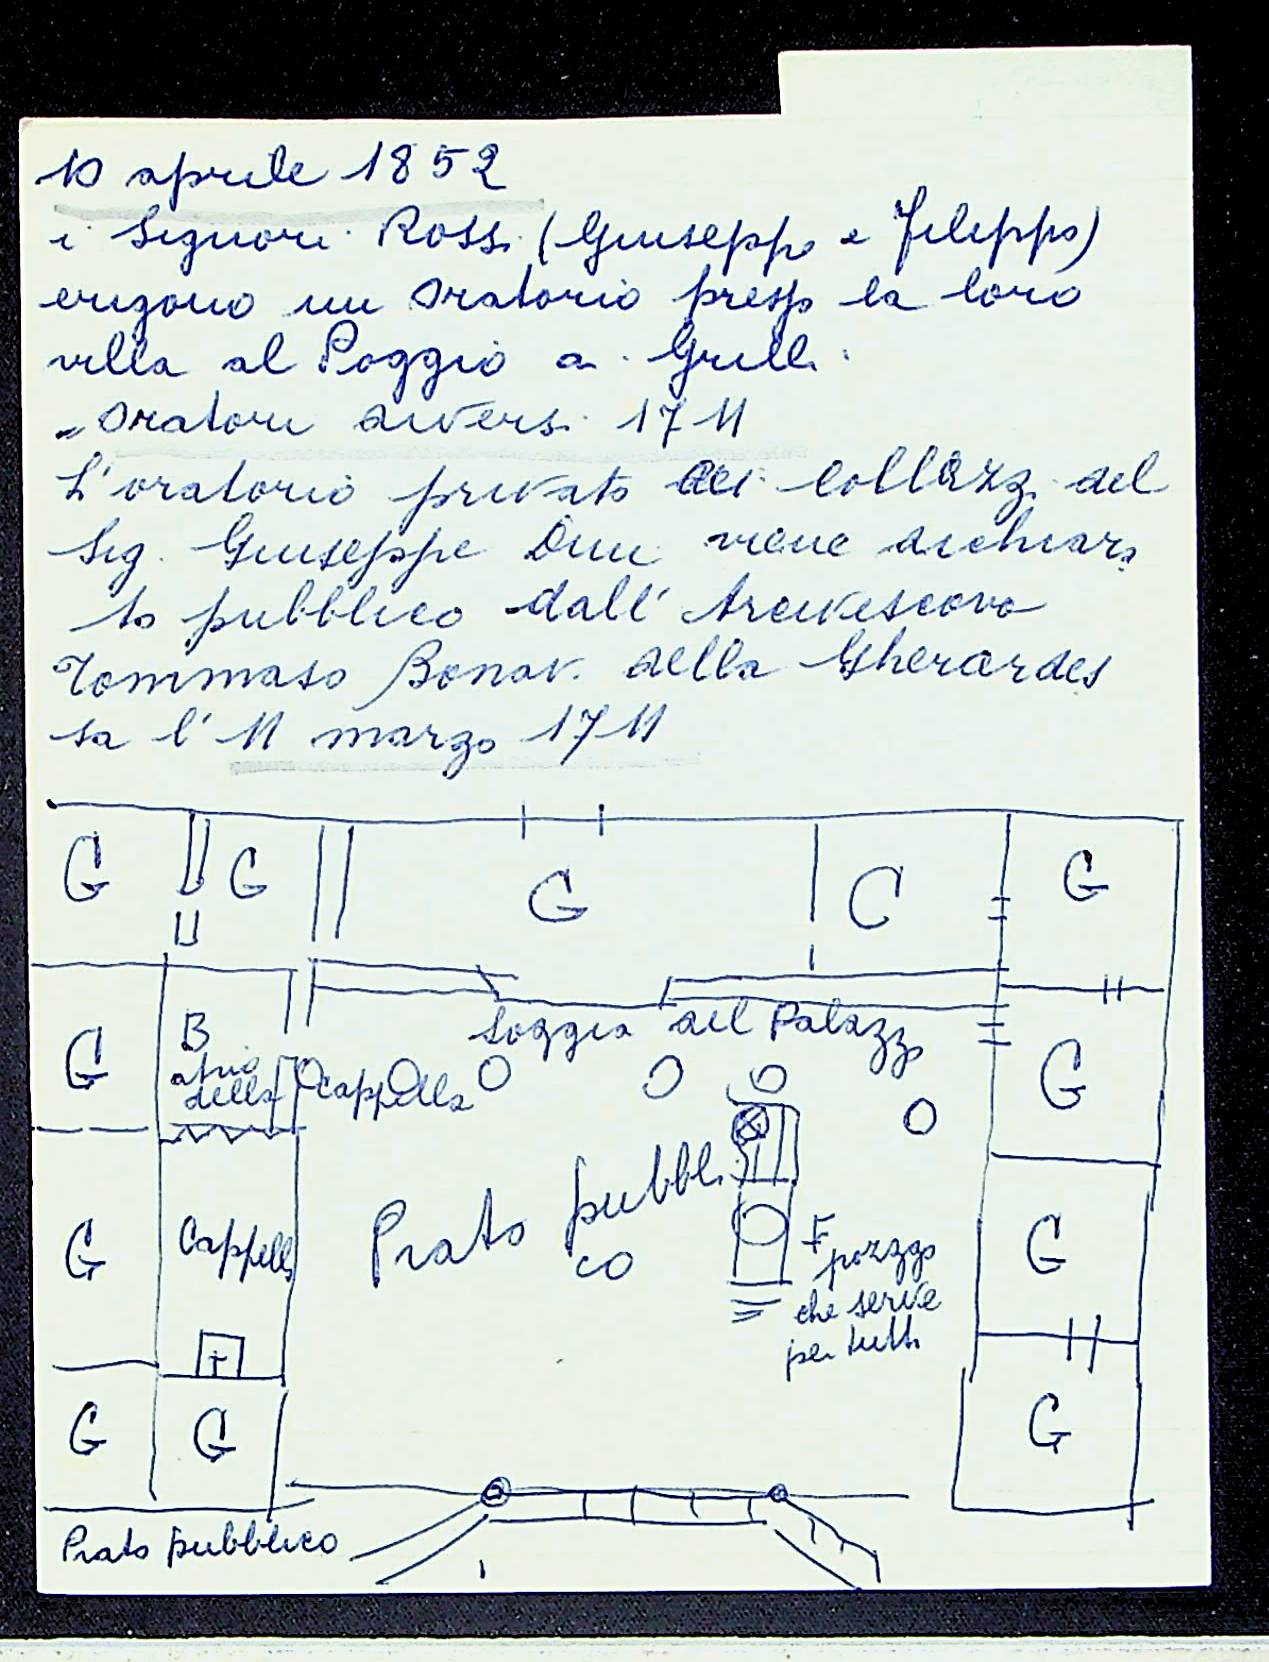 10 aprile 1852
i Signori Rossi (Giuseppe e Filippo)
erigono un oratorio presso la loro
villa al Poggio a Grilli.
Oratori diversi 1711
L'oratorio privato dei Collazzi del
Sig. Giuseppe Dini viene dichiara
to pubblico dall'Arcivescovo
Tommaso Bonav. della Gherardes
sa l'11 marzo 1711
G G G C G
G B Loggia del Palazzo G
atrio
della Cappella
Prato pubbli
co
G Cappella F G
pozzo
che serve
per tutti
G G G
Prato pubblico